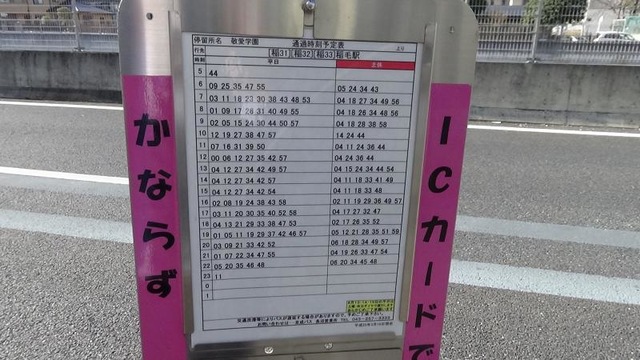 停留所名 敬愛学園 通過時刻予定表 より
行先 [稲31] [稲32] [稲33] 稲毛駅
時刻 平日 土休
5 44
6 09 25 35 47 55 05 24 34 43
7 03 11 18 23 30 38 43 48 53 04 18 27 34 49 56
8 01 09 17 26 31 40 49 55 04 18 26 34 48 56
9 02 05 15 24 30 44 50 57 04 18 28 38 58
10 12 19 27 38 47 57 14 24 44
11 07 16 31 39 50 04 11 24 36 44
12 00 06 12 27 35 42 57 04 24 36 44
13 04 12 27 34 42 49 57 04 15 24 34 44 54
14 04 12 27 34 42 57 04 11 18 33 41 49
15 04 12 27 34 42 54 04 11 18 33 48
16 02 08 19 24 38 43 58 02 11 19 29 36 49 57
17 03 11 20 30 35 40 52 58 04 17 27 32 47
18 04 13 21 29 33 38 47 53 02 17 26 35 52
19 01 05 11 19 29 37 42 46 57 05 12 21 28 35 51 59
20 03 09 21 33 42 52 06 18 28 34 49 57
21 01 07 22 34 47 55 04 19 26 33 47 54
22 05 20 35 46 48 06 20 34 45 48
23 11
0
1
交通渋滞等によりバスが遅延する場合がありますので、予めご了承下さい。
かならず
ICカードで